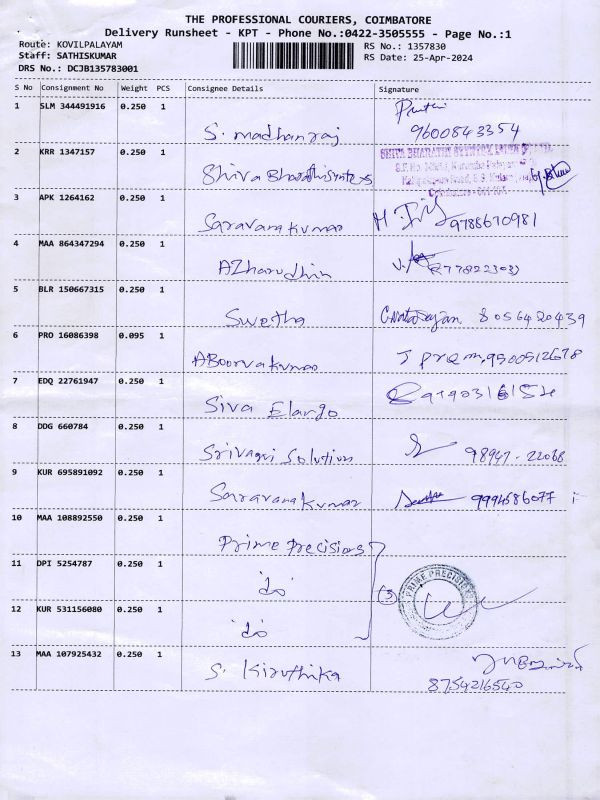 THE PROFESSIONAL COURIERS, COIMBATORE
Delivery Runsheet - KPT - Phone No.:0422-3505555 - Page No.:1
Route: KOVILPALAYAM RS No.: 1357830
Staff: SATHISKUMAR RS Date: 25-Apr-2024
DRS No.: DCJB135783001
S No Consignment No Weight PCS Consignee Details Signature
1 SLM 344491916 0.250 1
S. madhanraj 9600843354
2 KRR 1347157 0.250 1
SHIVA BHARATHI
3 APK 1264162 0.250 1
Saravanakumar 9788670981
4 MAA 864347294 0.250 1
AZharudhin
5 BLR 150667315 0.250 1
Swetha 8056420439
6 PRO 16086398 0.095 1
ABoorvakumar J prem, 9500512678
7 EDQ 22761947 0.250 1
Siva Elango
8 DDG 660784 0.250 1
Srivagni Solution 98947-22068
9 KUR 695891092 0.250 1
Saravanakumar 9994586077
10 MAA 108892550 0.250 1
Prime Precisions
11 DPI 5254787 0.250 1
'do'
PRIME PRECISION
(3)
12 KUR 531156080 0.250 1
'do'
13 MAA 107925432 0.250 1
S. Kiruthika
8754216540